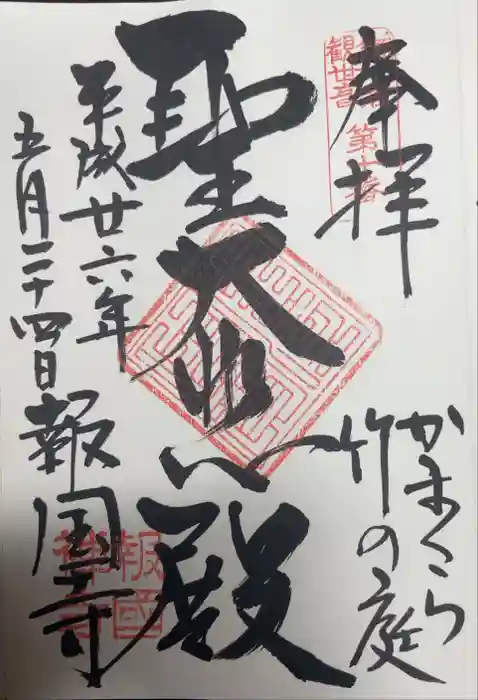 奉拝
かまくら
竹の庭
聖大悲殿
平成廿六年
五月二十四日
報国寺
観世音
第十番
報國